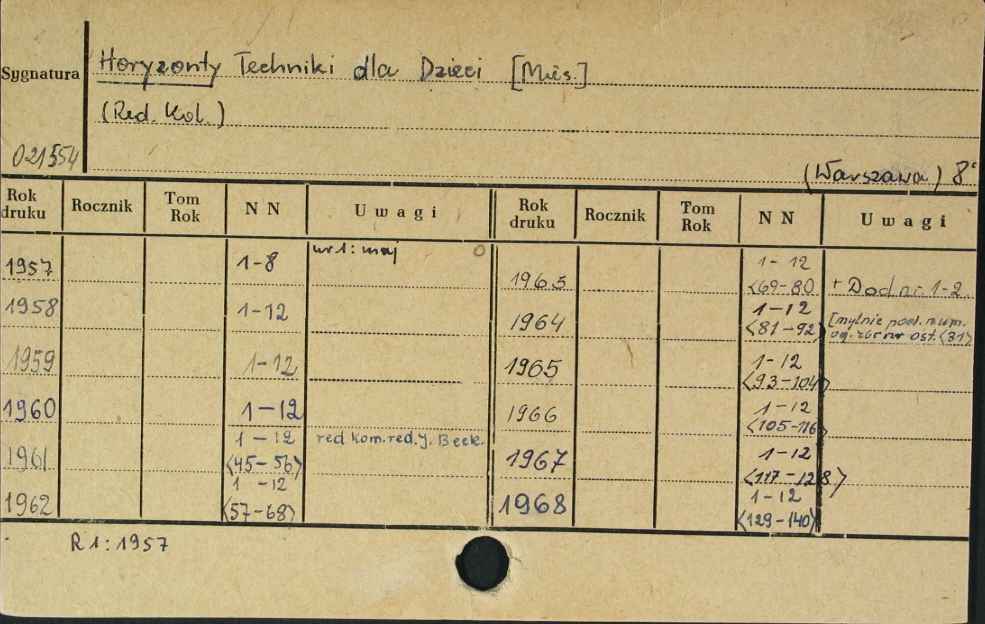 Sygnatura
Horyzonty Techniki dla Dzieci [Mies.]
(Red. Kol.)
021554
(Warszawa) 8°
Rok druku Rocznik Tom Rok N N Uwagi Rok druku Rocznik Tom Rok N N Uwagi
1957 1-8 nr 1: maj 0
1963 1-12 <69-80 + Dod nr. 1-2
1958 1-12
1964 1-12 <81-92> [mylnie pod. num. og. zbr nr ost. <91>
1959 1-12
1965 1-12 <93-104>
1960 1-12
1966 1-12 <105-116>
1961 1-12 <45-56> red kom. red. J. Beck.
1967 1-12 <117-128>
1962 1-12 <57-68>
1968 1-12 <129-140>
R 1: 1957